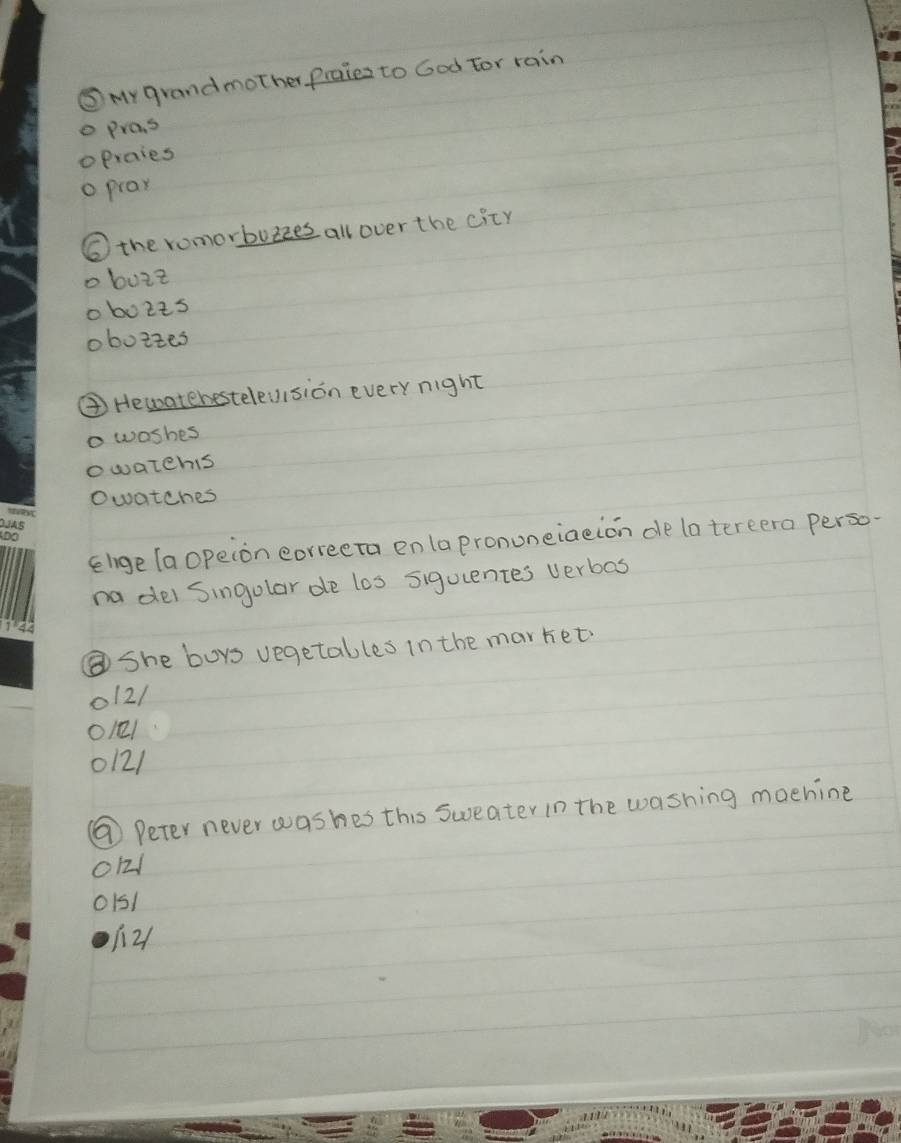 ⑤ My grandmother praies to God For rain
o pra,s
o praies
o pray
⑥ the romor buzzes all over the city
o buzz
o bozzs
o bozzes
⑦ He watches televisión every night
o woshes
o watchis
o watches
elige la opción correcta en la pronunciación de la tercera perso-
na del Singular de los siguientes verbos
⑧ She buys vegetables in the market
o /z/
o /iz/
o /z/
⑨ Peter never washes this Sweater in the washing machine
o /z/
o /s/
● /iz/
OJAS
ADO